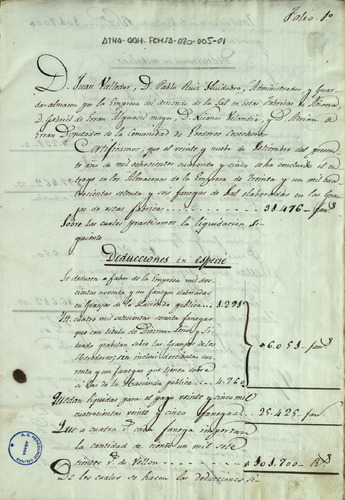 Folio 1º
ATHA-DAH-FCHSA-020-005-01
D. Juan Vallejar, D. Pablo Ruiz Huidobro, Administrador, y Guar-
da-almacen por la Empresa del arriendo de la Sal en estas Fabricas de Añana,
D. Gabriel de Eran Alguacil mayor D. Nicanor Velandia, y D.
Eran Diputados de la Comunidad de Dueños Cosecheros
Certificamos, que el veinte y nueve de Setiembre del presente
año de mil ochocientos cuarenta y cinco se há concluido el en-
trego en los Almacenes de la Empresa de treinta y un mil cua-
trocientas setenta, y seis fanegas de Sal elaboradas en las Gran-
jas de estas fabricas 31.476 - fans
Sobre las cuales practicamos la liquidacion si-
guiente
Deducciones en especie
Se deducen a favor de la Empresa mil dos-
cientas noventa y una fanegas elaboradas
en Granjas de la Hacienda publica 1.291
Yd. cuatro mil setecientas sesenta fanegas
que con titulo de Diezmo y Si-
tuado gravitan sobre las Granjas de los
Herederos; son incluso doscientas
y un fanegas que tienen sobre
si las de la Hacienda publica 4.760
6.051 - fans
Quedan liquidas para el pago veinte y cinco mil
cuatrocientas veinte y cinco fanegas 25.425 fans
Que a cuatro rs. cada fanega importan
la cantidad de ciento un mil sete
cientos rs. de Vellon 101.700 - Rs
De los cuales se hacen las deducciones si-